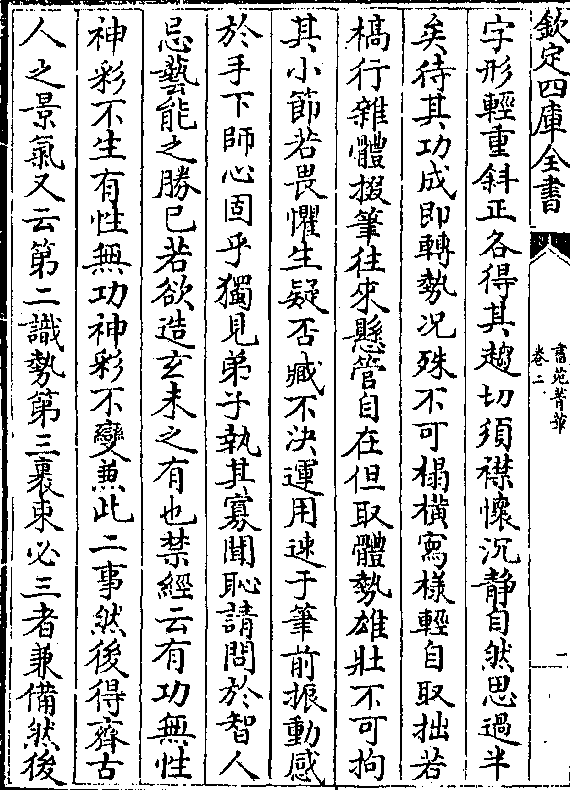 欽定四庫全書
書苑菁華
卷二
一
字形輕重斜正各得其趣切須襟懷沉靜自然思過半
矣待其功成即轉勢況殊不可榻橫寫様輕自取拙若
槁行雜體掇筆往來懸管自在但取體勢雄壯不可拘
其小節若畏懼生疑否臧不决運用迷于筆前振動感
於手下師心固乎獨見弟子執其寡聞恥請問於智人
忌藝能之勝已若欲造玄未之有也禁經云有功無性
神彩不生有性無功神彩不變兼此二事然後得齊古
人之景氣又云第二識勢第三裹束必三者兼備然後